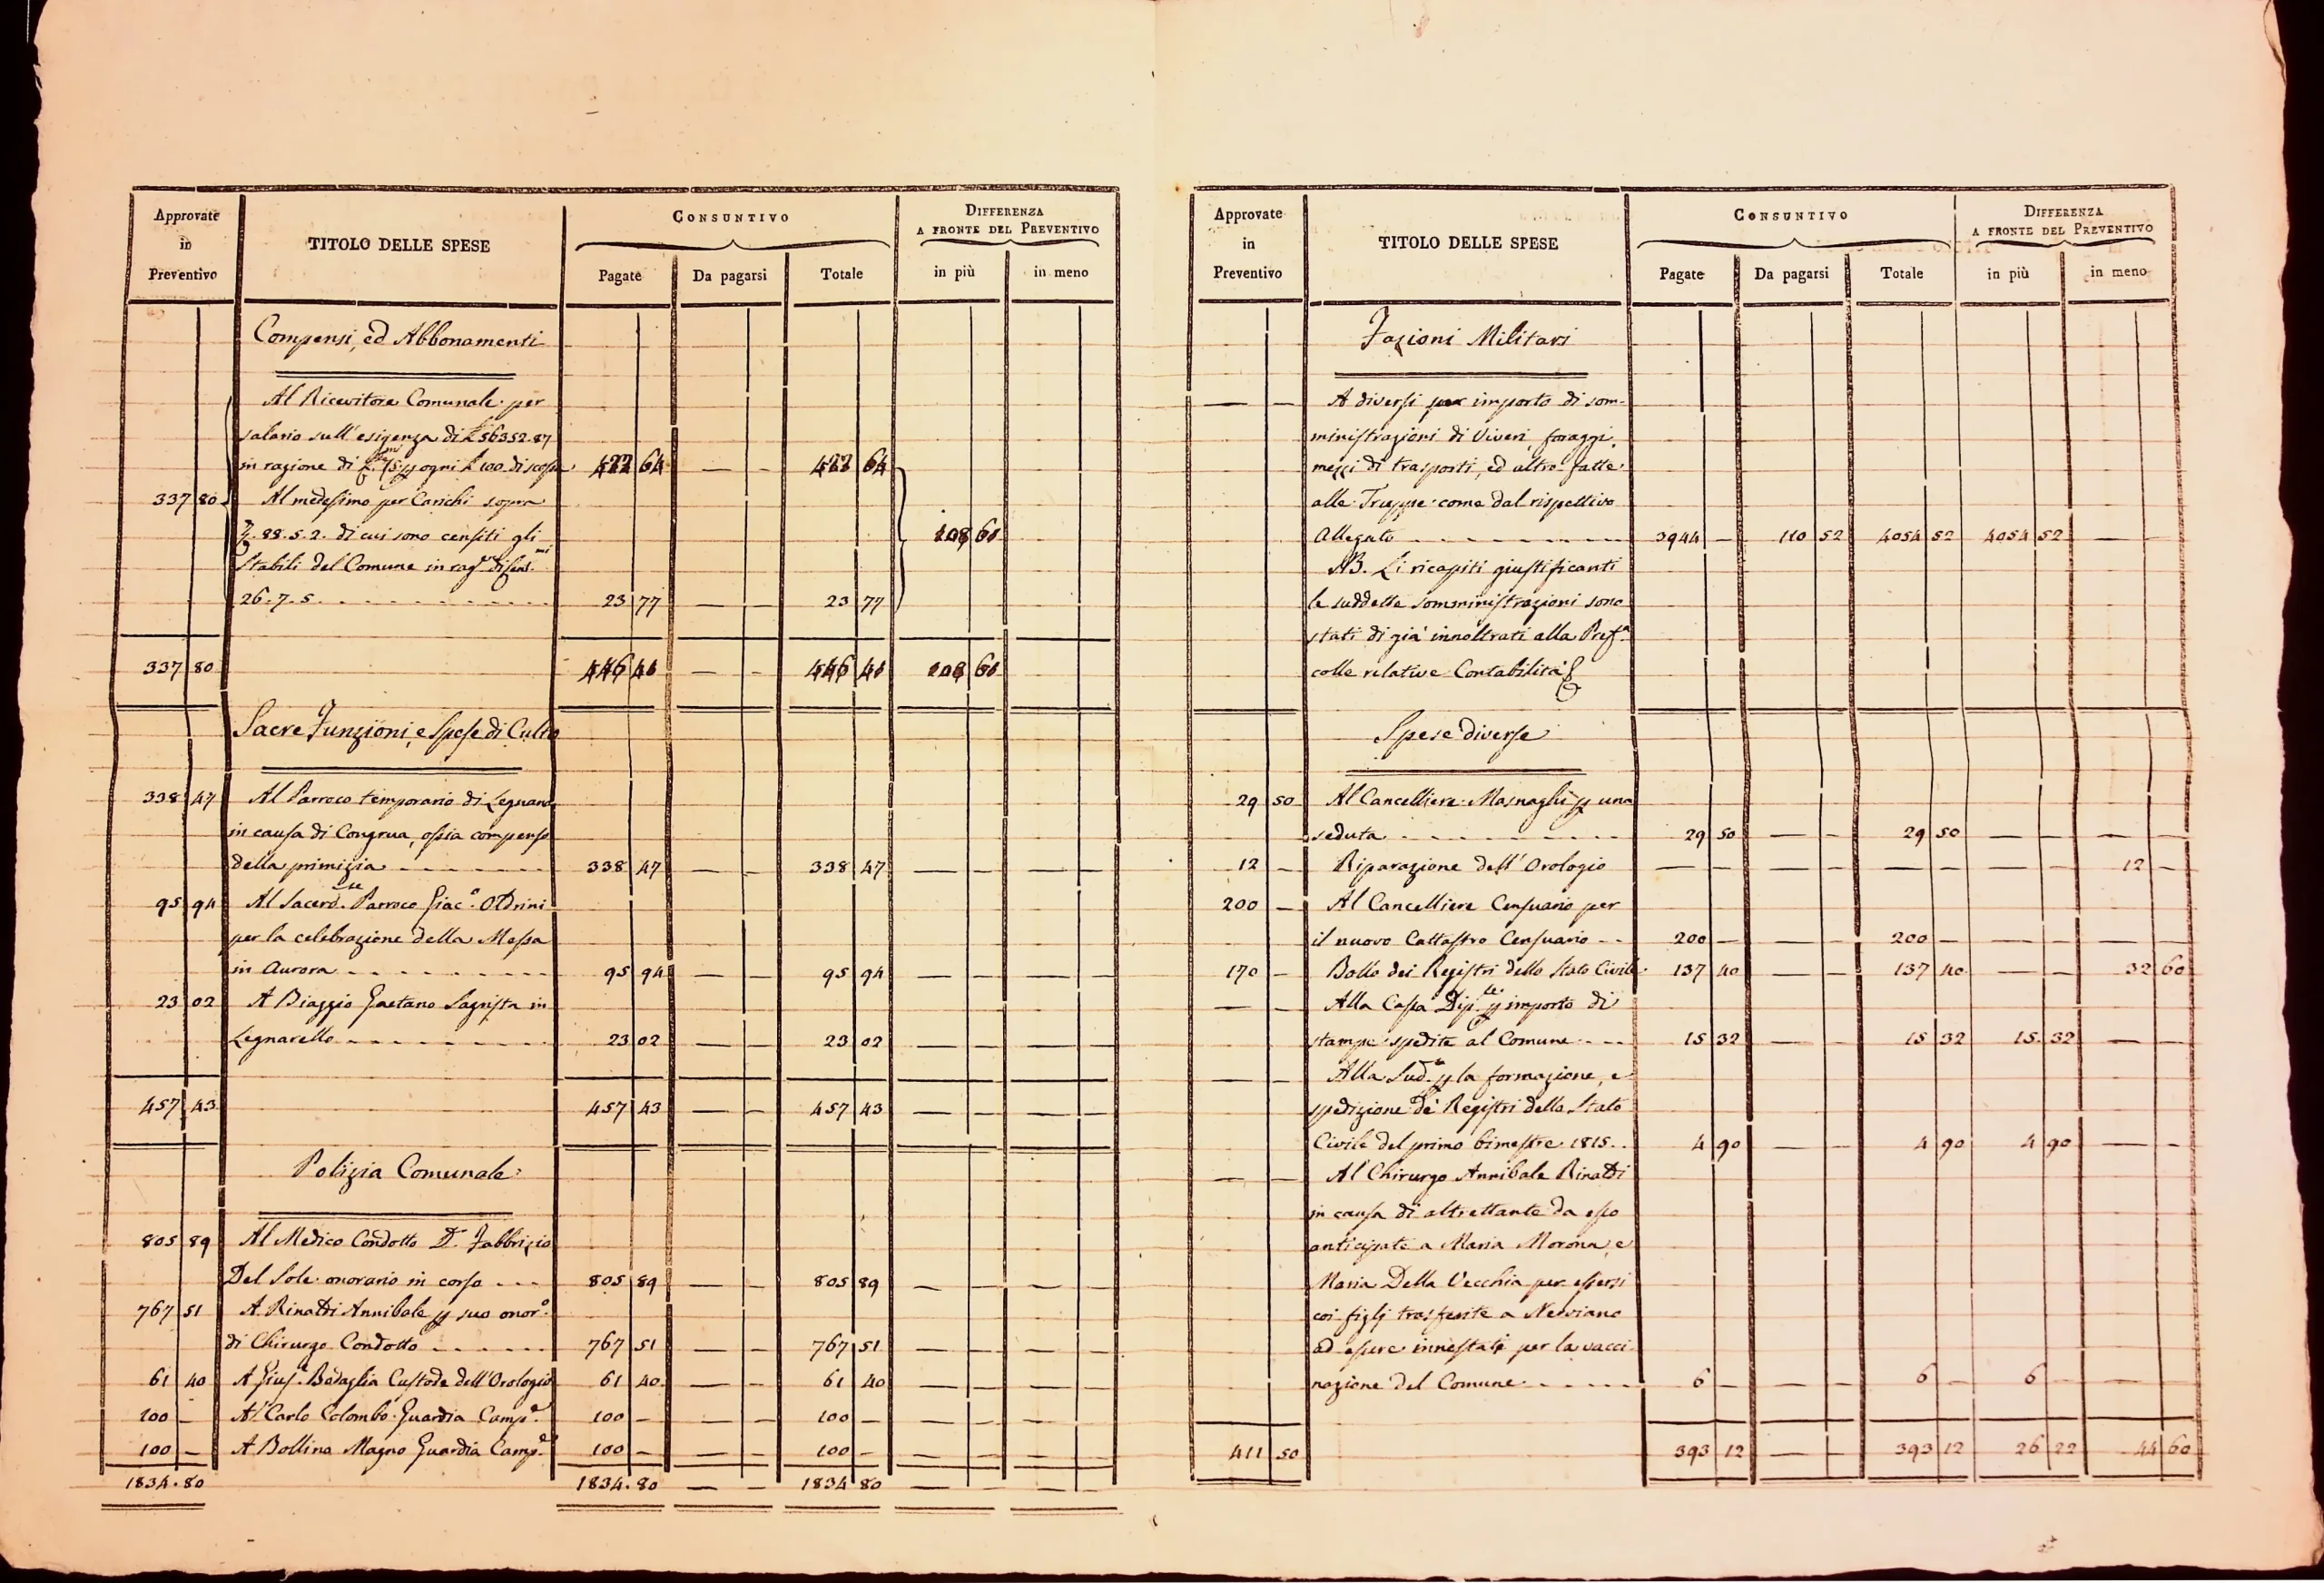 Approvate in Preventivo | TITOLO DELLE SPESE | CONSUNTIVO | DIFFERENZA A FRONTE DEL PREVENTIVO
Pagate | Da pagarsi | Totale | in più | in meno
Compensi, ed Abbonamenti
Al Ricevitore Comunale per
salario sull'esigenza di £ 56352.87
in ragione di ogni £ 100 di scossa 422 64 — - 422 64
337 80 Al medesimo per Carichi sopra
88.5.2. di cui sono censiti gli 108 61
Stabili del Comune in rag.ne di
26.7.5. 23 77 — - 23 77
337 80 446 41 — - 446 41 108 61
Sacre Funzioni, e Spese di Culto
338 47 Al Parroco temporario di Legnano
in causa di Congrua, ossia compenso
della primizia 338 47 — - 338 47 — - — -
95 94 Al Sacerd.te Parroco Giac.o Oldrini
per la celebrazione della Messa
in Aurora 95 94 — - 95 94 — - — -
23 02 A Biaggio Gaetano Sagrista in
Legnarello 23 02 — - 23 02 — - — -
457 43 457 43 — - 457 43 — - — -
Polizia Comunale
805 89 Al Medico Condotto D. Fabbrizio
Del Sole onorario in corso 805 89 — - 805 89 — - — -
767 51 A Rinaldi Annibale p suo onor.o
di Chirurgo Condotto 767 51 — - 767 51 — - — -
61 40 A Gius. Badaglia Custode dell'Orologio 61 40 — - 61 40 — - — -
100 - Al Carlo Colombo Guardia Camp.e 100 - — - 100 - — - — -
100 - A Bollina Magno Guardia Camp.e 100 - — - 100 - — - — -
1834.80 1834.80 — - 1834 80 — - — -
Approvate in Preventivo | TITOLO DELLE SPESE | CONSUNTIVO | DIFFERENZA A FRONTE DEL PREVENTIVO
Pagate | Da pagarsi | Totale | in più | in meno
Fazioni Militari
— - A diversi per importo di som-
ministrazioni di Viveri, foraggi,
mezzi di trasporti, ed altro fatte
alle Truppe come dal rispettivo
Allegato 3944 - 110 52 4054 52 4054 52 — -
NB. Li ricapiti giustificanti
le suddette somministrazioni sono
stati di già innoltrati alla Pref.a
colle relative Contabilità
Spese diverse
29 50 Al Cancelliere Masnaghi p una
seduta 29 50 — - 29 50 — - — -
12 - Riparazione dell'Orologio — - — - — - — - 12 -
200 - Al Cancelliere Censuario per
il nuovo Cattastro Censuario 200 - — - 200 - — - — -
170 - Bollo dei Registri dello Stato Civile 137 40 — - 137 40 — - 32 60
— - Alla Cassa Dip.le p importo di
stampe spedite al Comune 15 32 — - 15 32 15 32 — -
— - Alla Sud.a p la formazione, e
spedizione de' Registri dello Stato
Civile del primo bimestre 1815. 4 90 — - 4 90 4 90 — -
— - Al Chirurgo Annibale Rinaldi
in causa di altrettante da esso
anticipate a Maria Morona, e
Maria Della Vecchia per essersi
coi figlj trasferite a Nerviano
ad essere innestati per la vacci-
nazione del Comune 6 - — - 6 - 6 - — -
411 50 393 12 — - 393 12 26 22 44 60